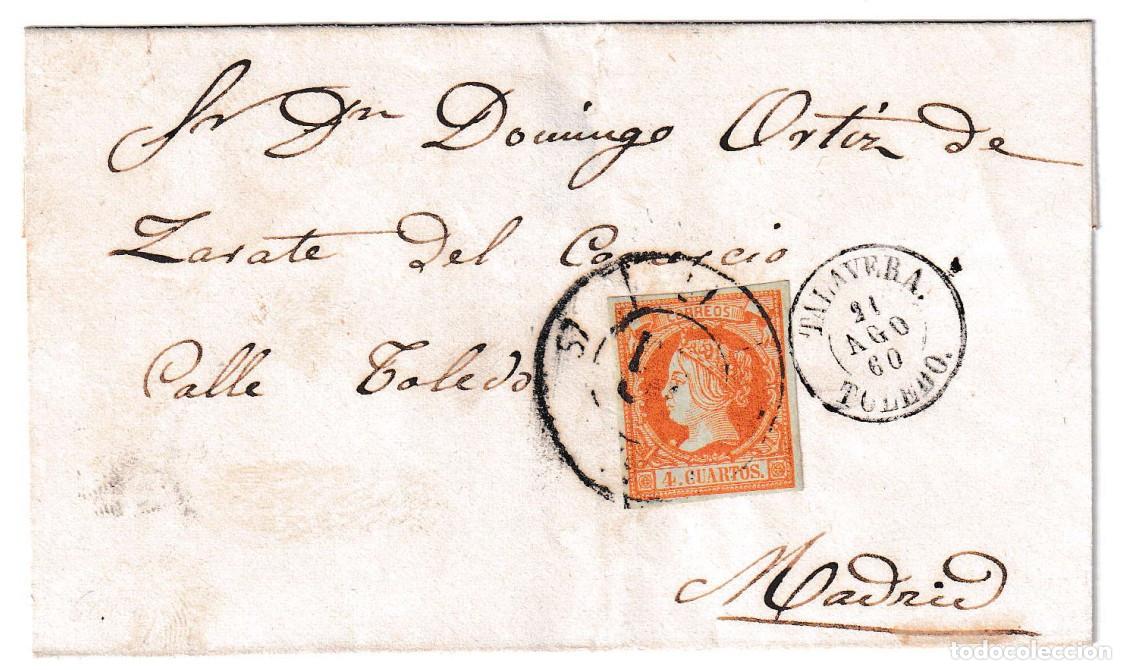 Sr Dn Domingo Ortiz de
Zarate del Comercio
Calle Toledo
Madrid
CORREOS
4. CUARTOS.
57
TALAVERA.
21
AGO
60
TOLEDO.
todocoleccion